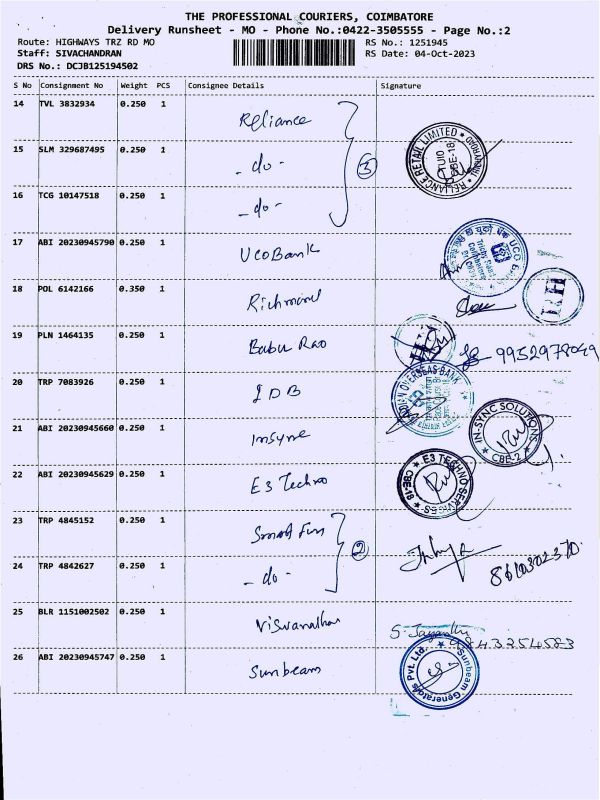 THE PROFESSIONAL COURIERS, COIMBATORE
Delivery Runsheet - MO - Phone No.:0422-3505555 - Page No.:2
Route: HIGHWAYS TRZ RD MO
RS No.: 1251945
Staff: SIVACHANDRAN
RS Date: 04-Oct-2023
DRS No.: DCJB125194502
S No Consignment No Weight PCS Consignee Details Signature
14 TVL 3832934 0.250 1 Reliance
15 SLM 329687495 0.250 1 - do -
3
RELIANCE RETAIL LIMITED
16 TCG 10147518 0.250 1 - do -
17 ABI 20230945790 0.250 1 UCO Bank
UCO
18 POL 6142166 0.350 1 Richmond
19 PLN 1464135 0.250 1 Babu Rao
9952979049
20 TRP 7083926 0.250 1 IDB
OVERSEAS BANK
21 ABI 20230945660 0.250 1 Insync
IN-SYNC SOLUTIONS
CBE-2
22 ABI 20230945629 0.250 1 E3 Techno
E3 TECHNO SERVICES
CBE-18
23 TRP 4845152 0.250 1 Smart Fin
2
24 TRP 4842627 0.250 1 - do -
8610302370
25 BLR 1151002502 0.250 1 Viswanathan
S. Jayanthi
9843254583
26 ABI 20230945747 0.250 1 Sunbeam
Sunbeam Generators Pvt. Ltd.